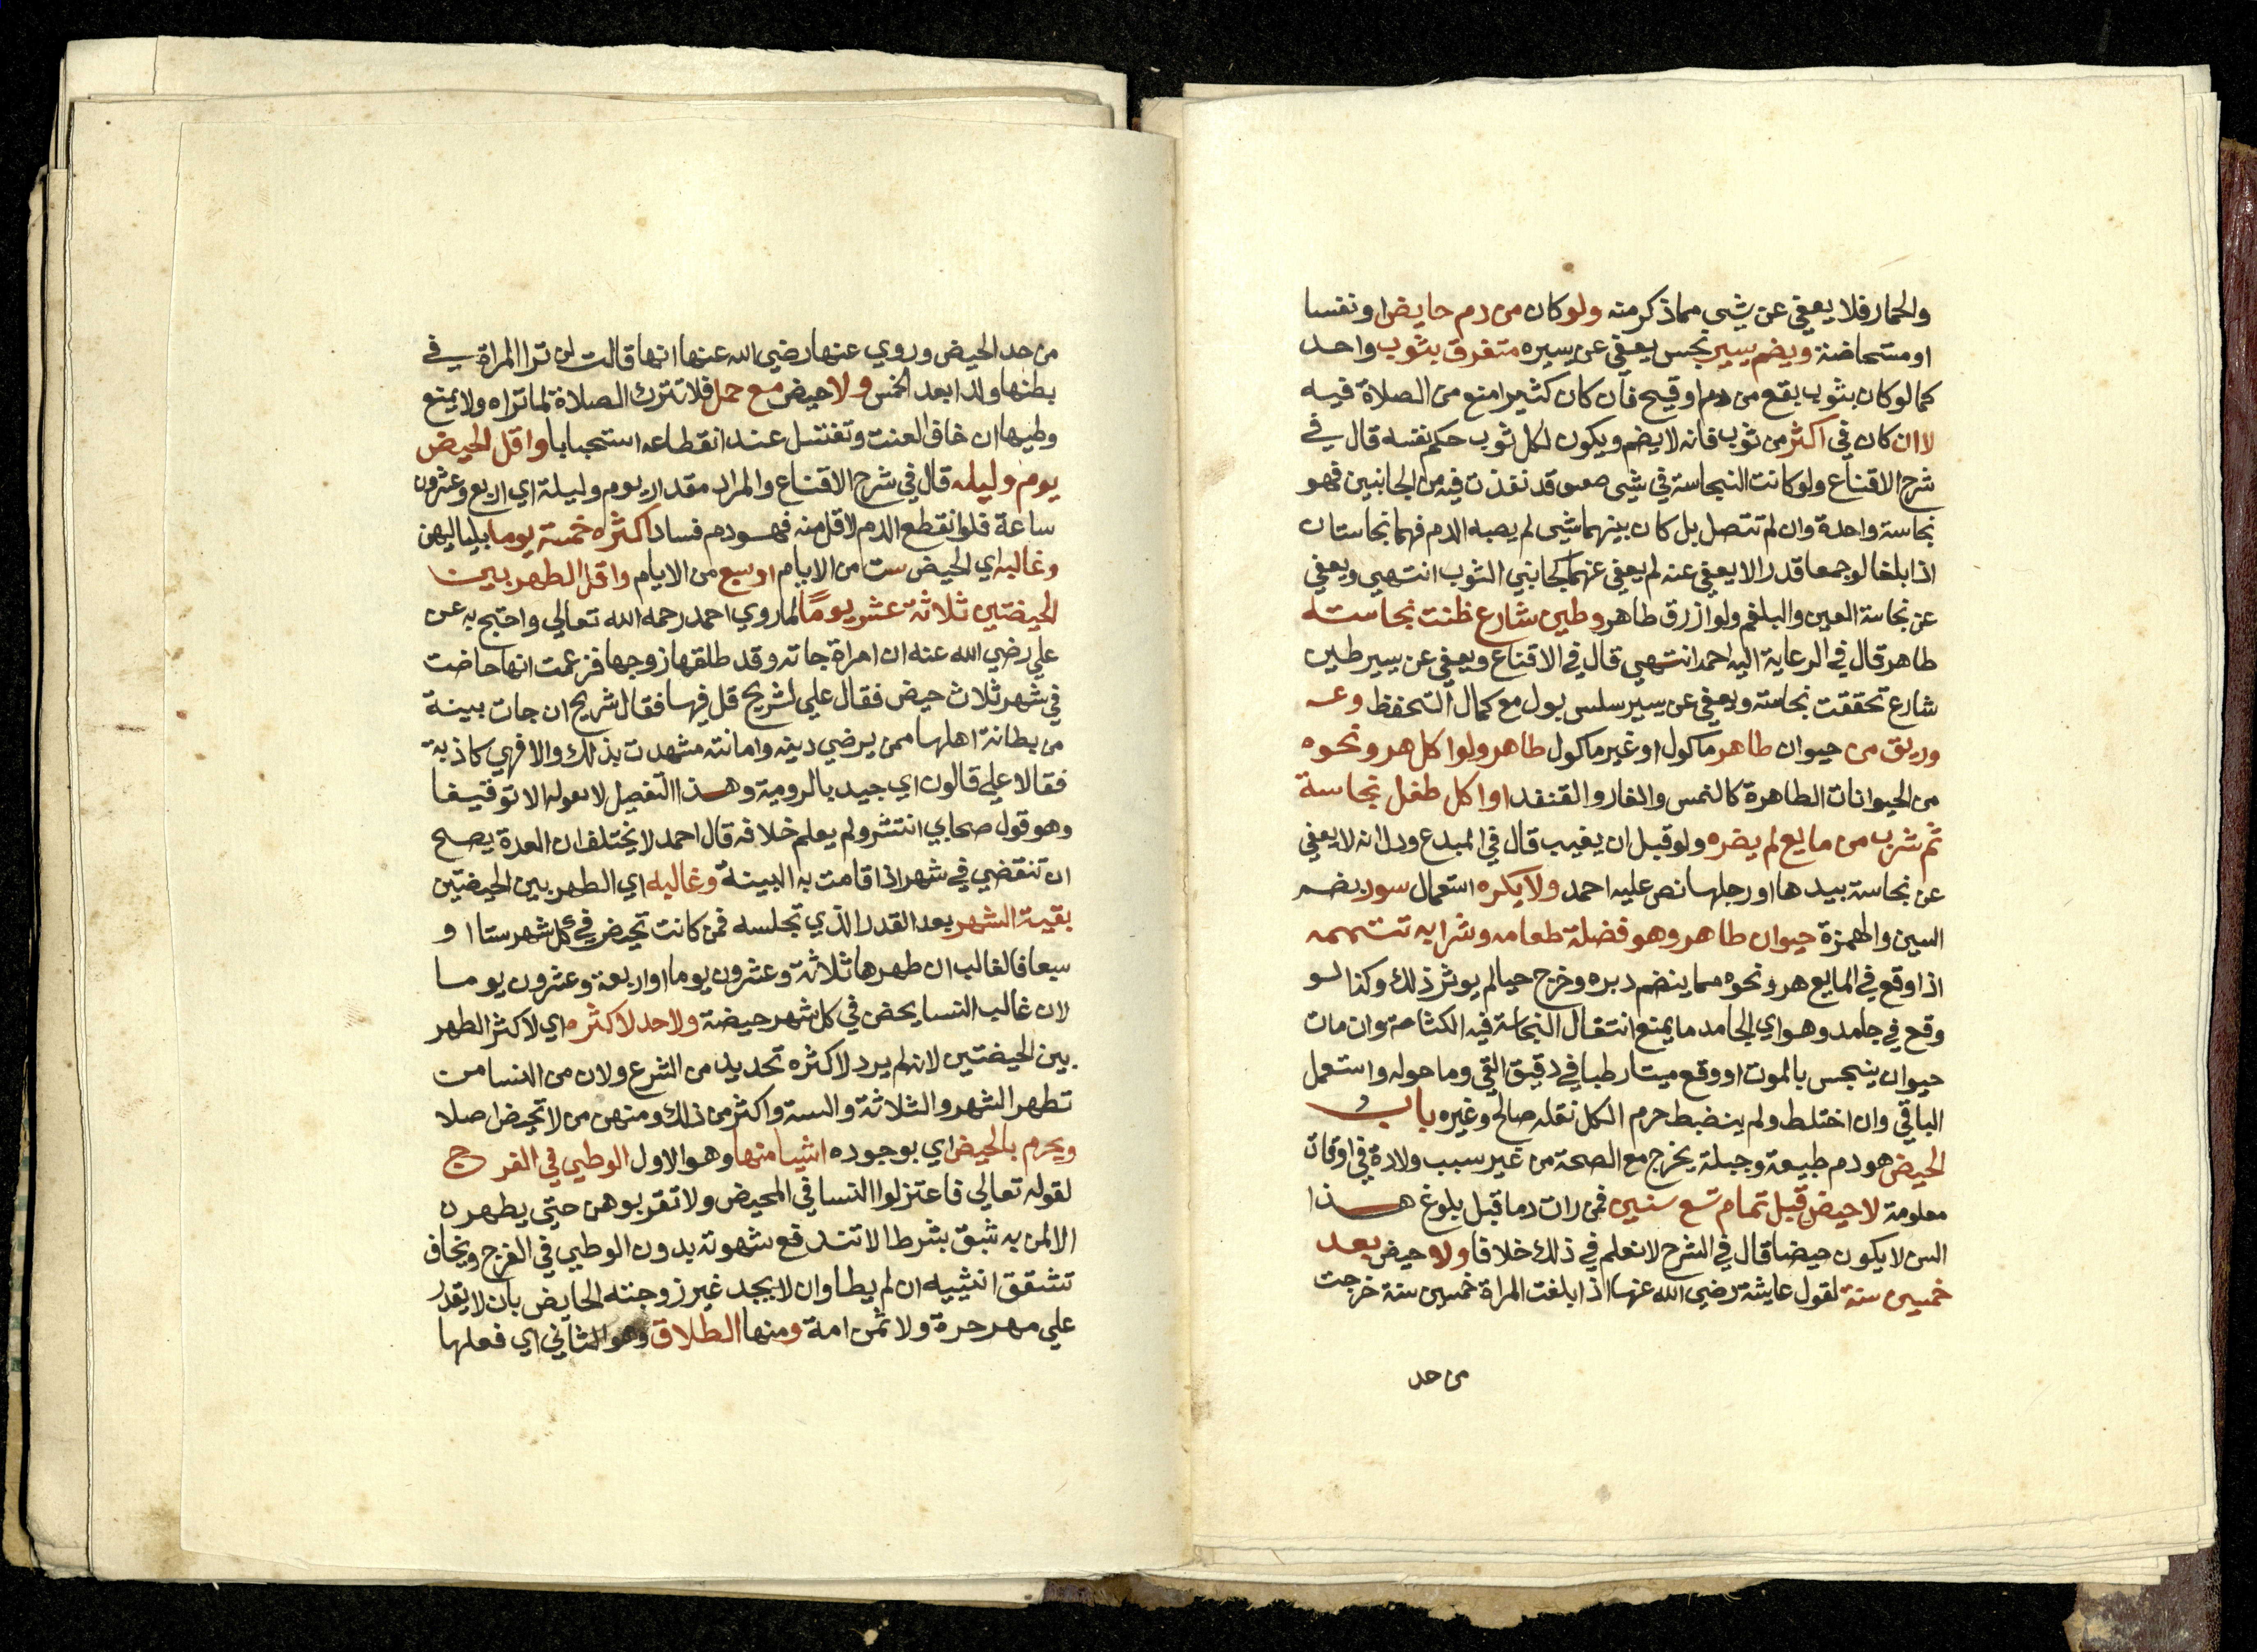 والحمار فلا يعفي عن شي مما ذكر منه ولو كان من دم حايض او نفسا
او مستحاضة ويضم يسير نجس يعفي عن يسيره متفرق بثوب واحد
كما لو كان بثوب بقع من دم او قيح فان كان كثيرا منع من الصلاة فيه
لا ان كان في اكثر من ثوب فانه لا يضم ويكون لكل ثوب حكم نفسه قال في
شرح الاقناع ولو كانت النجاسة في شي صفيق قد نفذت فيه من الجانبين فهو
نجاسة واحدة وان لم تتصل بل كان بينهما شي لم يصبه الدم فهما نجاستان
اذا بلغا لو جمعا قدرا لا يعفي عنه لم يعفي عنهما كجانبي الثوب انتهي ويعفي
عن نجاسة العين والبلغم ولو ازرق طاهر وطين شارع ظنت نجاسته
طاهر قال في الرعاية اليه احمد انتهي قال في الاقناع ويعفي عن يسير طين
شارع تحققت نجاسته ويعفي عن يسير سلس بول مع كمال التحفظ وعرق
وريق من حيوان طاهر ماكول او غير ماكول طاهر ولو اكل هر ونحوه
من الحيوانات الطاهرة كالنمس والفار والقنفد او اكل طفل نجاسة
ثم شرب من مايع لم يضره ولو قبل ان يغيب قال في المبدع ودل انه لا يعفي
عن نجاسة بيدها او رجلها نص عليه احمد ولا يكره استعمال سور بضم
السين والهمزة حيوان طاهر وهو فضلة طعامه وشرابه تتمه
اذا وقع في المايع هر ونحوه مما ينضم دبره وخرج حيا لم يوثر ذلك وكذا لو
وقع في جامد وهو اي الجامد ما يمنع انتقال النجاسة فيه الكثافة وان مات
حيوان ينجس بالموت او وقع ميتا رطبا في دقيق القي وما حوله واستعمل
الباقي وان اختلط ولم ينضبط حرم الكل نقله صالح وغيره باب
الحيض هو دم طبيعة وجبلة يخرج مع الصحة من غير سبب ولادة في اوقات
معلومة لا حيض قبل تمام تسع سنين فمن رات دما قبل بلوغ هذا
السن لا يكون حيضا قال في الشرح لا نعلم في ذلك خلافا ولا حيض بعد
خمسين سنة لقول عايشة رضي الله عنها اذا بلغت المراة خمسين سنة خرجت
من حد
من حد الحيض وروي عنها رضي الله عنها انها قالت لن ترا المراة في
بطنها ولدا بعد الخمس ولا حيض مع حمل فلا تترك الصلاة لما تراه ولا يمنع
وطيها ان خاف العنت وتغتسل عند انقطاعه استحبابا واقل الحيض
يوم وليله قال في شرح الاقناع والمراد مقدار يوم وليلة اي اربع وعشرون
ساعة فلو انقطع الدم لاقل منه فهو دم فساد اكثره خمسة يوما بلياليهن
وغالبه اي الحيض ست من الايام او سبع من الايام واقل الطهر بين
الحيضتين ثلاثة عشر يومًا لما روي احمد رحمه الله تعالي واحتج به عن
علي رضي الله عنه ان امراة جاته وقد طلقها زوجها فزعمت انها حاضت
في شهر ثلاث حيض فقال علي لشريح قل فيها فقال شريح ان جات ببينة
من بطانة اهلها ممن يرضي دينه وامانته مشهدت بذلك والا فهي كاذبة
فقالا علي قالون اي جيد بالرومية وهذا التفصيل لا يقوله الا توقيفا
وهو قول صحابي انتشر ولم يعلم خلافه قال احمد لا يختلف ان العدة يصح
ان تنقضي في شهر اذا قامت به البينة وغالبه اي الطهر بين الحيضتين
بقية الشهر بعد القدر الذي تجلسه فمن كانت تحيض في كل شهر ستا او
سبعا فالغالب ان طهرها ثلاثة وعشرون يوما او اربعة وعشرون يوما
لان غالب النسا يحض في كل شهر حيضة ولا حد لاكثره اي لاكثر الطهر
بين الحيضتين لانه لم يرد لاكثره تحديد من الشرع ولان من النسا من
تطهر الشهر والثلاثة والسة واكثر من ذلك ومنهن من لا تحيض اصلا
ويحرم بالحيض اي بوجوده اشيا منها وهو الاول الوطي في الفرج
لقوله تعالي فاعتزلوا النسا في المحيض ولا تقربوهن حتي يطهرن
الا لمن به شبق بشرط الا تندفع شهوته بدون الوطي في الفرج ويخاف
تشقق انثييه ان لم يطا وان لا يجد غير زوجته الحايض بان لا يقدر
علي مهر حرة ولا ثمن امة ومنها الطلاق وهو الثاني اي فعلها